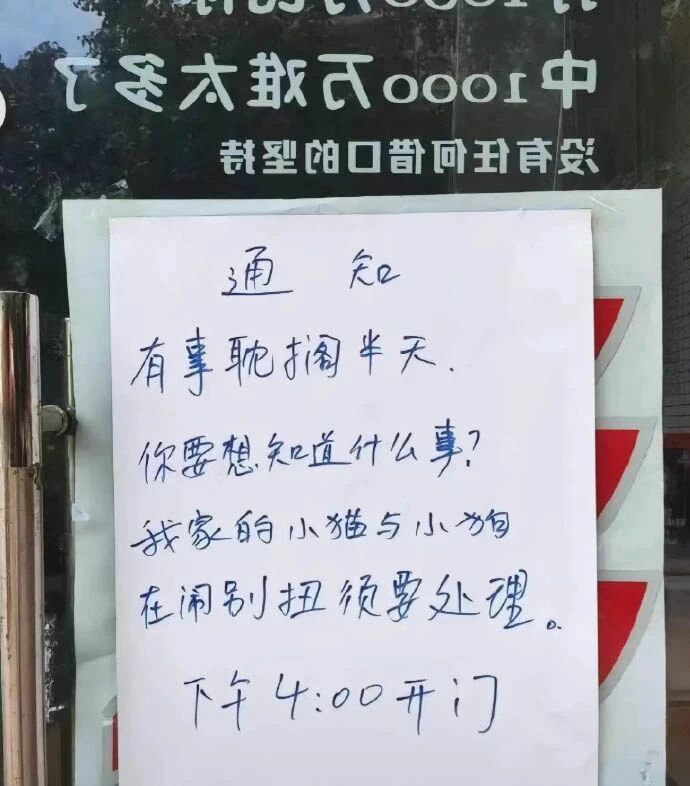 中1000万难太多了
没有任何借口的坚持
通知
有事耽搁半天.
你要想知道什么事?
我家的小猫与小狗
在闹别扭须要处理。
下午4:00开门